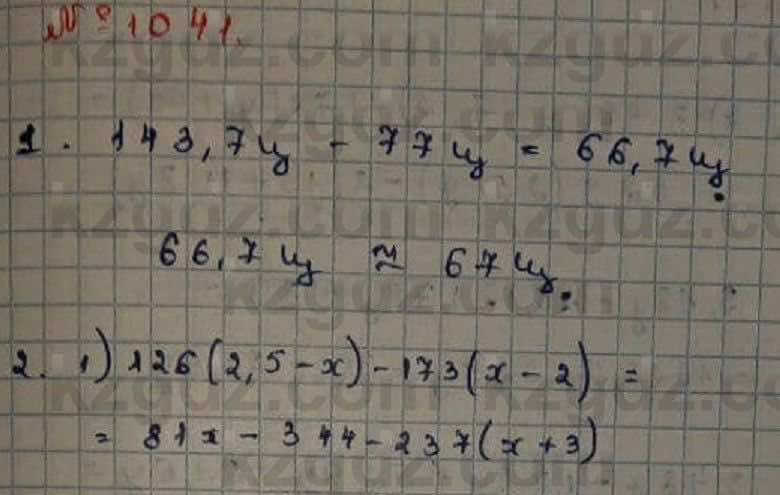 № 1041.
1. 143,7 ц - 77 ц = 66,7 ц.
66,7 ц ≈ 67 ц.
2. 1) 126(2,5-x)-173(x-2) =
= 81x-344-237(x+3)
kzguz.com